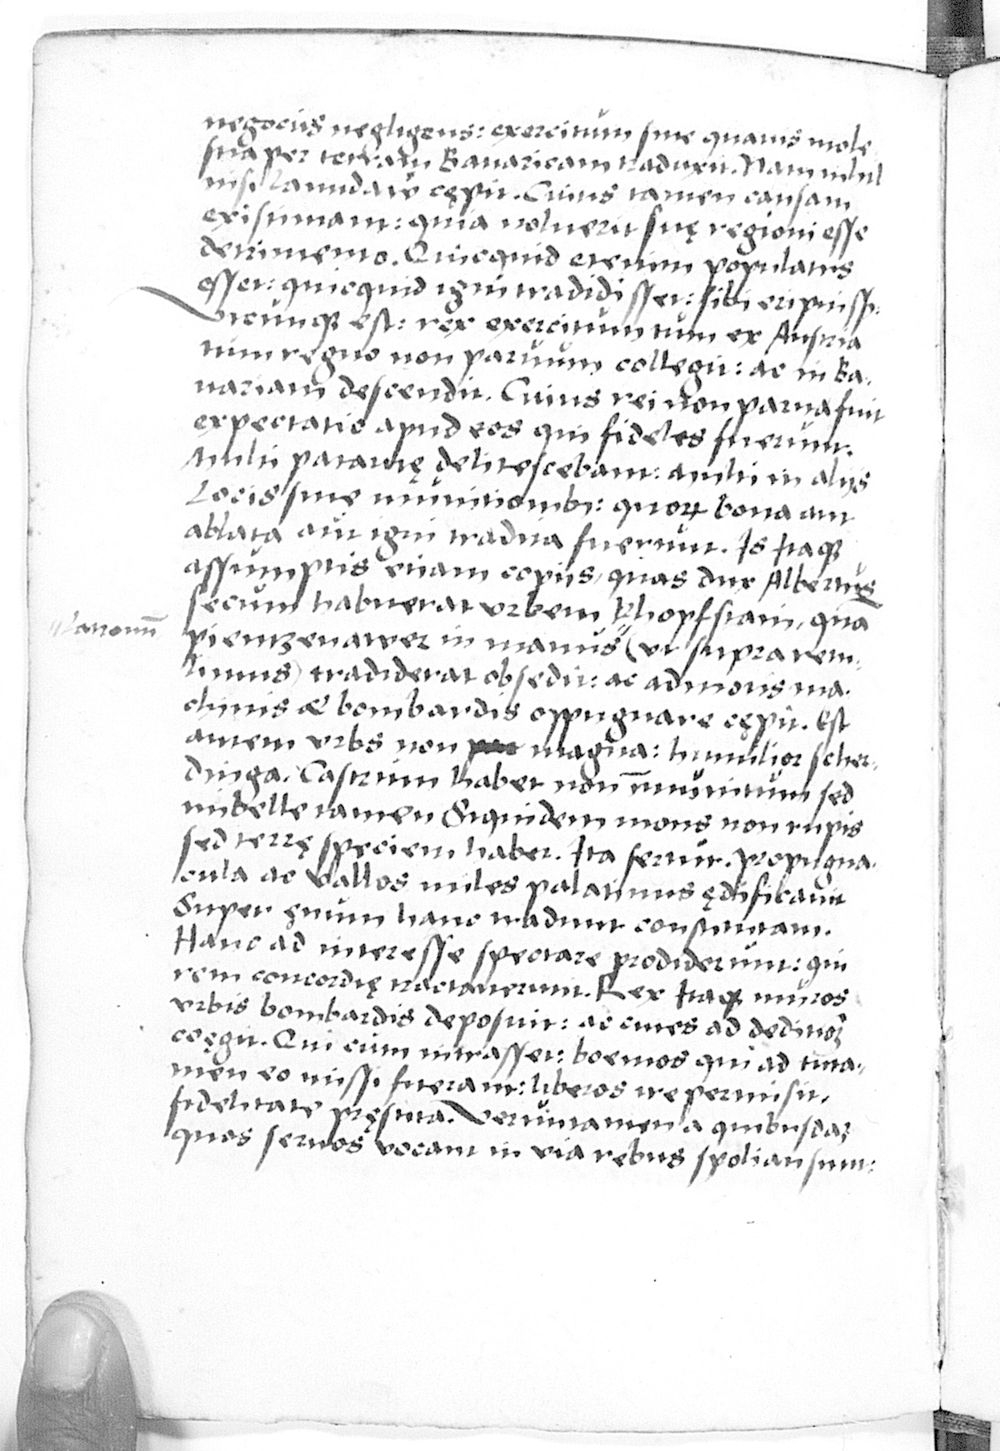 negociis negligens: exercitum sine quauis mole
stia per terram Bauaricam traduxit. Nam nihil
nisi laudare cępit. Cuius tamen causam
existimant: quia noluerit suę regioni esse
detrimento. Quicquid etenim populatus
esset: quicquid igni tradidisset: sibi eripuisset.
Vtcunque est: rex exercitum tum ex Austria
tum regno non paruum collegit: ac in Ba-
uariam descendit. Cuius rei non parua fuit
expectatio apud eos qui fideles fuerunt.
Multi patauię delitescebant: multi in alijs
Locis sine munitionibus: quorum bona aut
ablata aut igni tradita fuerunt. Is Itaque
assumptis etiam copiis, quas dux Albertus
secum habuerat vrbem Khopfstain, qua
"Latronum
pientzenawer in manus (vt supra retu-
limus) tradiderat obsedit: ac admotis ma-
chinis & bombardis oppugnare cępit. Est
autem vrbs non magna: humilior scher-
dinga. Castrum habet non munitum sed
imbelle tamen Siquidem mons non rupis
sed terrę speciem habet. Ita fertur. propugna-
cula ac vallos miles palatinus ędificauit
Super ęnum hanc tradunt constitutam.
Hanc ad interesse spectare prodiderunt: qui
rem concordię tractauerunt. Rex Itaque muros
vrbis bombardis deposuit: ac ciues ad deditionem
coęgit. Qui cum intrasset: boemos qui ad tuta-
men eo missi fuerant: liberos ire permisit,
fidelitate pręstita. Veruntamen a quibusdam
quos seruos vocant in via rebus spoliati sunt: